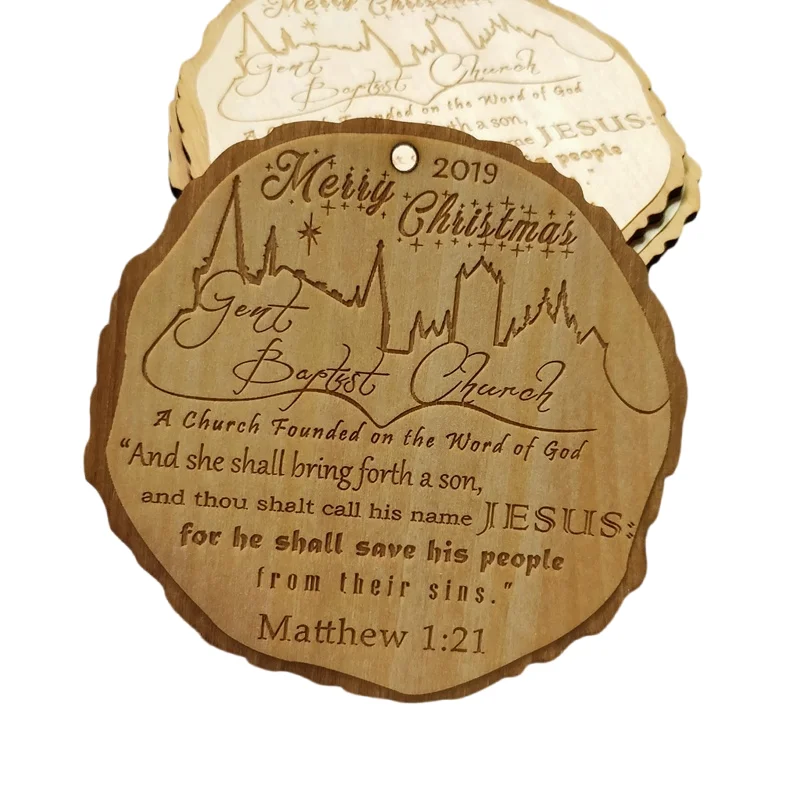 Merry Christmas
Gent
Baptist Church
A Church Founded on the Word of God
th a son,
me JESUS:
people
"
Merry 2019
Christmas
Gent
Baptist Church
A Church Founded on the Word of God
“And she shall bring forth a son,
and thou shalt call his name JESUS:
for he shall save his people
from their sins."
Matthew 1:21